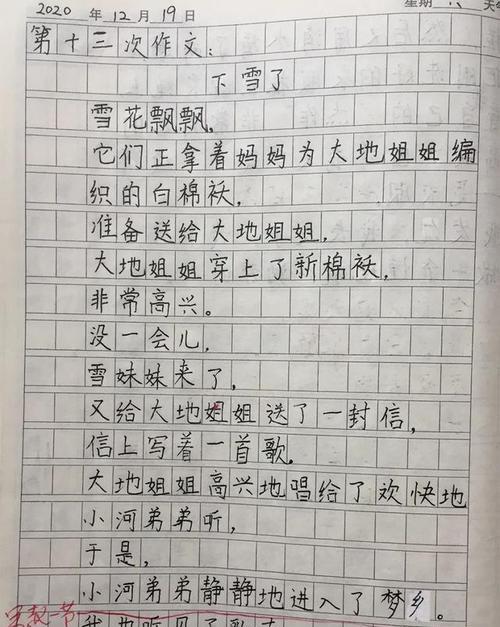 2020年12月19日 星期六 天
第十三次作文:
下雪了
雪花飘飘,
它们正拿着妈妈为大地姐姐编
织的白棉袄,
准备送给大地姐姐,
大地姐姐穿上了新棉袄,
非常高兴。
没一会儿,
雪妹妹来了,
又给大地姐姐送了一封信,
信上写着一首歌,
大地姐姐高兴地唱给了欢快地
小河弟弟听,
于是,
小河弟弟静静地进入了梦乡。
我也听见了